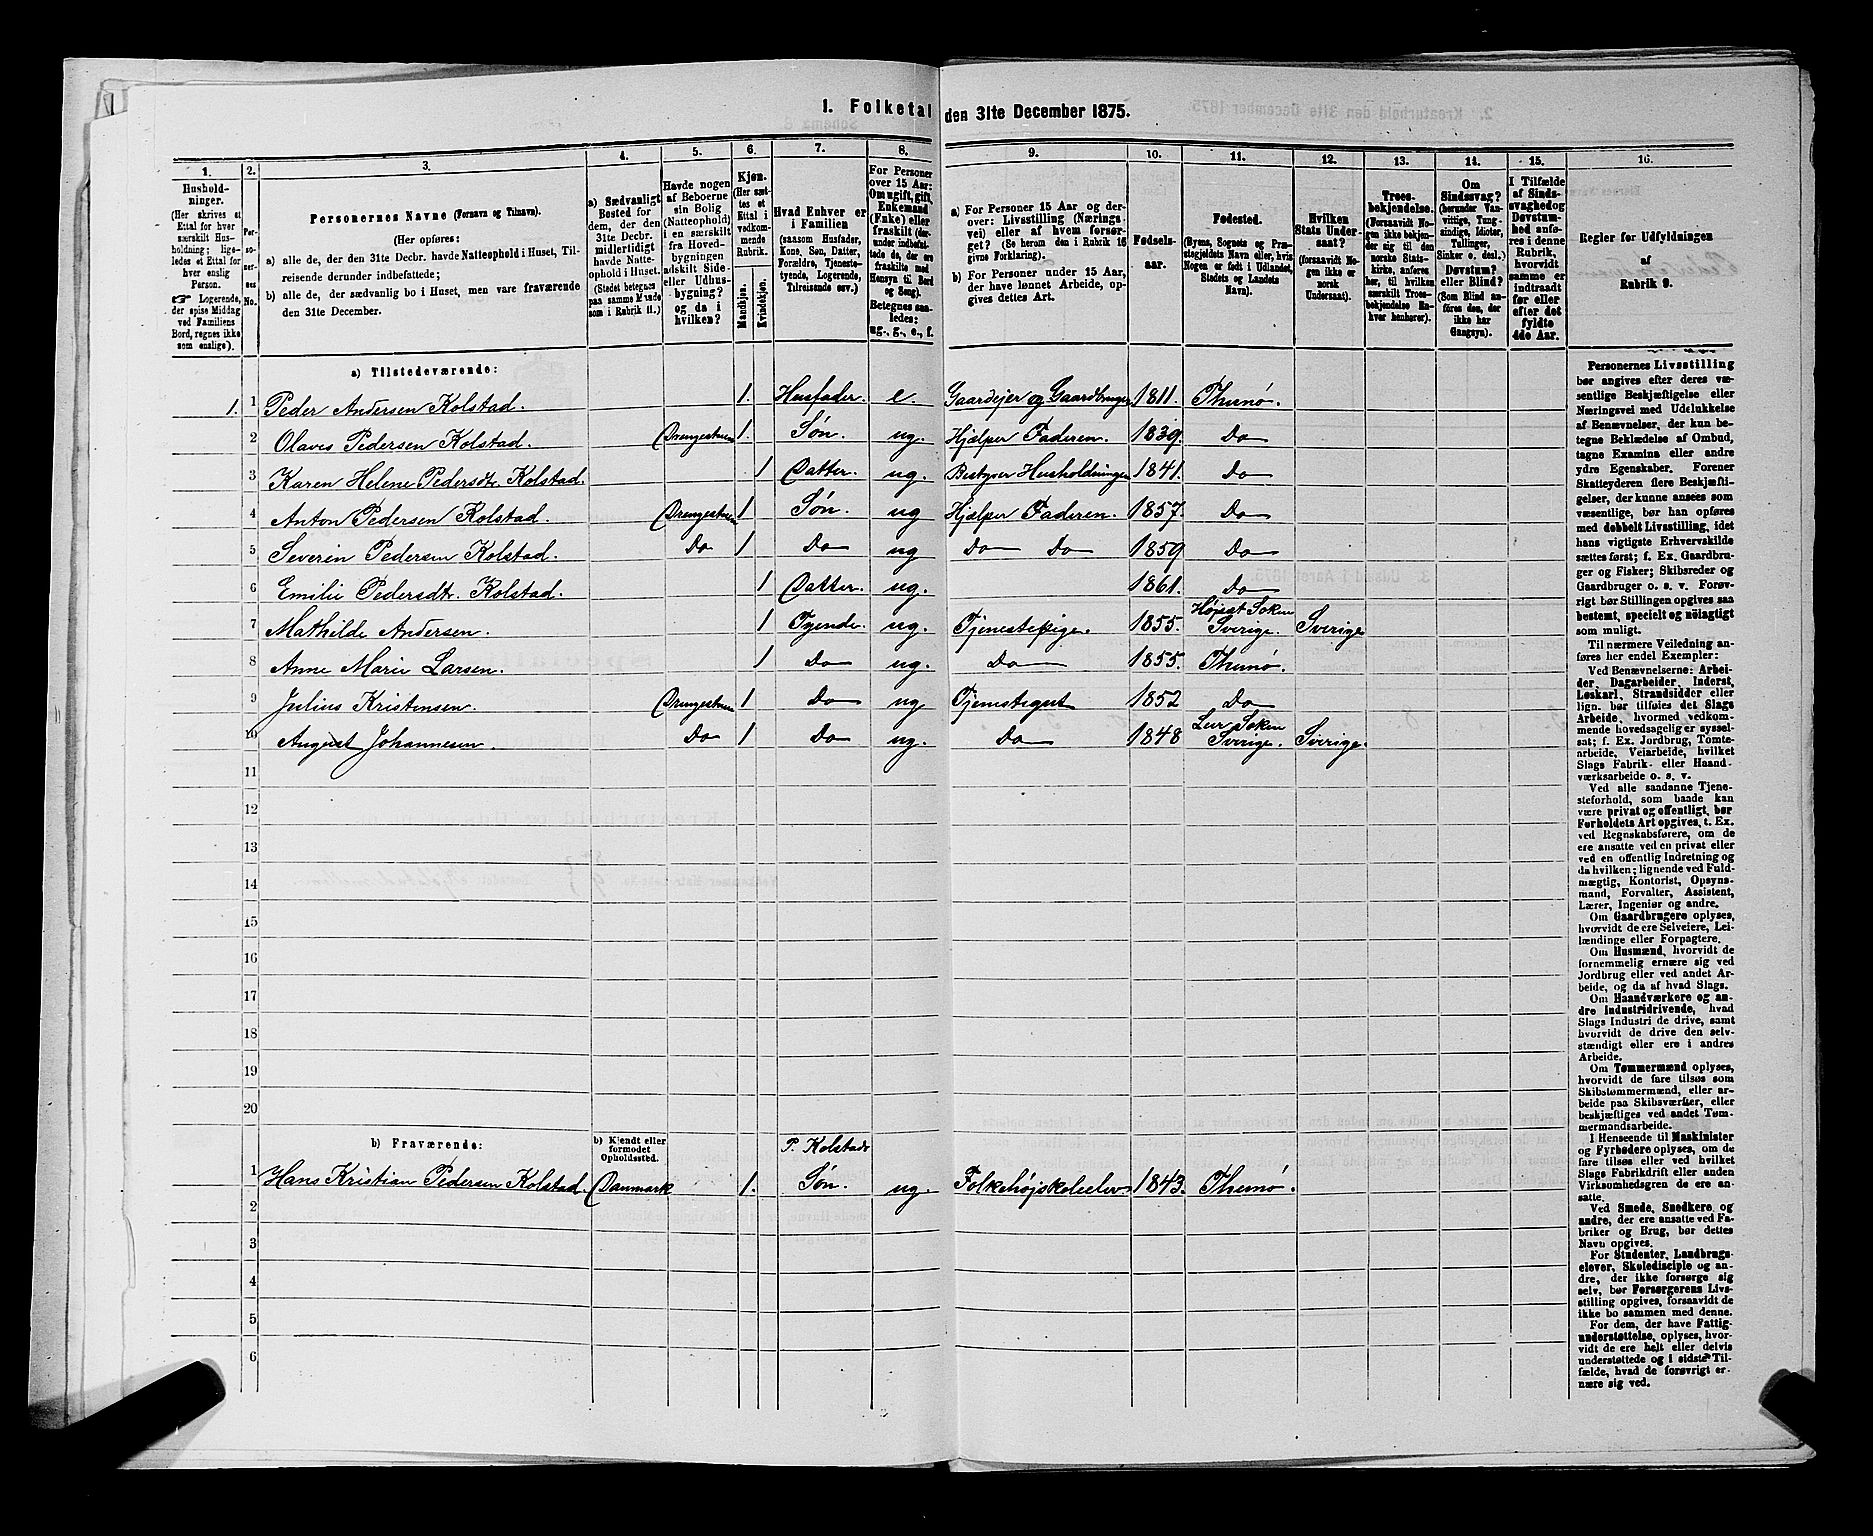 1. Folketal den 31te December 1875.
1. 2. 3. 4. 5. 6. 7. 8. 9. 10. 11. 12. 13. 14. 15. 16.
Hushold-
ninger.
(Her skrives et
Ettal for hver
særskilt Hus-
holdning; lige-
ledes et Ettal for
hver enslig
Person.
☞ Logerende,
der spise Middag
ved Familiens
Bord, regnes ikke
som enslige).
Per-
so-
ner-
nes
No.
Personernes Navne (Fornavn og Tilnavn).
(Her opføres:
a) alle de, der den 31te Decbr. havde Natteophold i Huset, Til-
reisende derunder indbefattede;
b) alle de, der sædvanlig bo i Huset, men vare fraværende
den 31te December.
a) Sædvanligt
Bosted for
dem, der den
31te Decbr.
midlertidigt
havde Natte-
ophold i Huset.
(Stedet betegnes
paa samme Maade
som i Rubrik 11.)
Havde nogen
af Beboerne
sin Bolig
(Natteophold)
i en særskilt
fra Hoved-
bygningen
adskilt Side-
eller Udhus-
bygning?
og da i
hvilken?
Kjøn.
(Her sæt-
tes et
Ettal i
vedkom-
mende
Rubrik.
Mandkjøn.
Kvindekjøn.
Hvad Enhver er
i Familien
(saasom Husfader,
Kone, Søn, Datter,
Forældre, Tjeneste-
tyende, Logerende,
Tilreisende osv.)
For Personer
over 15 Aar:
Om ugift, gift,
Enkemand
(Enke) eller
fraskilt (der-
under indbefat-
tede de, der ere
fraskilte med
Hensyn til Bord
og Seng).
Betegnes saa-
ledes:
ug., g., e., f.
a) For Personer 15 Aar og der-
over: Livsstilling (Nærings-
vei) eller af hvem forsør-
get? (Se herom den i Rubrik 16
givne Forklaring).
b) For Personer under 15 Aar,
der have lønnet Arbeide, op-
gives dettes Art.
Fødsels-
aar.
Fødested.
(Byens, Sognets og Præ-
stegjeldets Navn eller, hvis
Nogen er født i Udlandet,
Stedets og Landets
Navn).
Hvilken
Stats Under-
saat?
(forsaavidt No-
gen ikke er
norsk
Undersaat).
Troes-
bekjendelse.
(Forsaavidt No-
gen ikke bekjen-
der sig til den
norske Stats-
kirke, anføres
her, til hvilken
særskilt Troes-
bekjendelse En-
hver henhører).
Om
Sindssvag?
(herunder Van-
vittige, Tung-
sindige, Idioter,
Tullinger,
Sinker o. desl.)
Døvstum?
eller Blind?
(Som Blind an-
føres den, der
ikke har
Gangsyn).
I Tilfælde
af Sinds-
svaghed og
Døvstum-
hed anfø-
res i denne
Rubrik,
hvorvidt
samme er
indtraadt
før eller
efter det
fyldte
4de Aar.
Regler for Udfyldningen
af
Rubrik 9.
a) Tilstedeværende:
1. 1 Peder Andersen Kolstad. 1. Husfader. e. Gaardejer og Gaardbruger 1811. Thunø.
2 Olaves Pedersen Kolstad. Drengestuen 1. Søn. ug. Hjælper Faderen. 1839. Do
3 Karen Helene Pedersdtr Kolstad. 1 Datter. ug. Bestyrer Husholdningen 1841. Do
4 Anton Pedersen Kolstad. Drengestuen 1 Søn. ug Hjælper Faderen. 1857. Do
5 Severin Pedersen Kolstad. Do 1 Do ug Do Do 1859 Do
6 Emilie Pedersdtr. Kolstad. 1 Datter. ug. 1861. Do
7 Mathilde Andersen. 1 Tyende. ug. Tjenestepige. 1855. Sverige. Sverige
8 Anne Marie Larsen. 1 Do ug. Do 1855. Thunø.
9 Julius Kristensen. Drengestuen 1 Do ug Tjenestegut 1852 Do
10 August Johannesen. Do 1 Do ug. Do 1848 Sverige. Sverige.
11
12
13
14
15
16
17
18
19
20
b) Fraværende: b) Kjendt eller
formodet
Opholdssted.
P. Kolstads
1 Hans Kristian Pedersen Kolstad. Danmark 1. Søn. ug. Folkehøjskoleelev 1843. Thunø.
2
3
4
5
6
Personernes Livsstilling
bør angives efter deres væ-
sentlige Beskjæftigelse eller
Næringsvei med Udelukkelse
af Benævnelser, der kun be-
tegne Beklædelse af Ombud,
tagne Examina eller andre
ydre Egenskaber. Forener
Skatteyderen flere Beskjæfti-
gelser, der kunne ansees som
væsentlige, bør han opføres
med dobbelt Livsstilling, idet
hans vigtigste Erhvervskilde
sættes først; f. Ex. Gaardbru-
ger og Fisker; Skibsreder og
Gaardbruger o. s. v. Forøv-
rigt bør Stillingen opgives saa
bestemt, specielt og nøiagtigt
som muligt.
Til nærmere Veiledning an-
føres her endel Exempler:
Ved Benævnelserne: Arbei-
der, Dagarbeider, Inderst,
Løskarl, Strandsidder eller
lign. bør tilføies det Slags
Arbeide, hvormed vedkom-
mende hovedsagelig er syssel-
sat; f. Ex. Jordbrug, Tomte-
arbeide, Veiarbeide, hvilket
Slags Fabrik- eller Haand-
værksarbeide o. s. v.
Ved alle saadanne Tjene-
steforhold, som baade kan
være privat og offentligt, bør
Forholdets Art opgives, t. Ex.
ved Regnskabsførere, om de
ere ansatte ved en privat eller
ved en offentlig Indretning og
da hvilken; lignende ved Fuld-
mægtig, Kontorist, Opsyns-
mand, Forvalter, Assistent,
Lærer, Ingeniør og andre.
Om Gaardbrugere oplyses,
hvorvidt de ere Selveiere, Lei-
lændinge eller Forpagtere.
Om Husmænd, hvorvidt de
fornemmelig ernære sig ved
Jordbrug eller ved andet Ar-
beide, og da af hvad Slags.
Om Haandværkere og an-
dre Industridrivende, hvad
Slags Industri de drive, samt
hvorvidt de drive den selv-
stændigt eller ere i andres
Arbeide.
Om Tømmermænd oplyses,
hvorvidt de fare tilsøs som
Skibstømmermænd, eller ar-
beide paa Skibsværfter, eller
beskjæftiges ved andet Tøm-
mermandsarbeide.
I Henseende til Maskinister
og Fyrbødere oplyses, om de
fare tilsøs eller ved hvilket
Slags Fabrikdrift eller anden
Virksomhedsgren de ere an-
satte.
Ved Smede, Snedkere og
andre, der ere ansatte ved Fa-
briker og Brug, bør dettes
Navn opgives.
For Studenter, Landbrugs-
elever, Skoledisciple og an-
dre, der ikke forsørge sig
selv, bør Forsørgerens Livs-
stilling opgives, forsaavidt de
ikke bo sammen med denne.
For dem, der have Fattig-
understøttelse, oplyses, hvor-
vidt de ere helt eller delvis
understøttede og i sidste Til-
fælde, hvad de forøvrigt er-
nære sig ved.